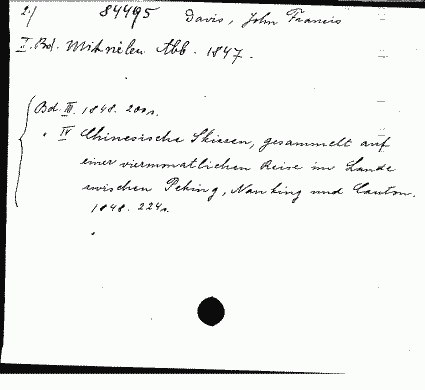 2./ 84495 Davis, John Francis
II. Bd. Mit vielen Abb. 1847.
Bd. III. 1848. 200 s.
" IV Chinesische Skizzen, gesammelt auf
einer viermonatlichen Reise im Lande
zwischen Peking, Nanking und Canton.
1848. 224 s.